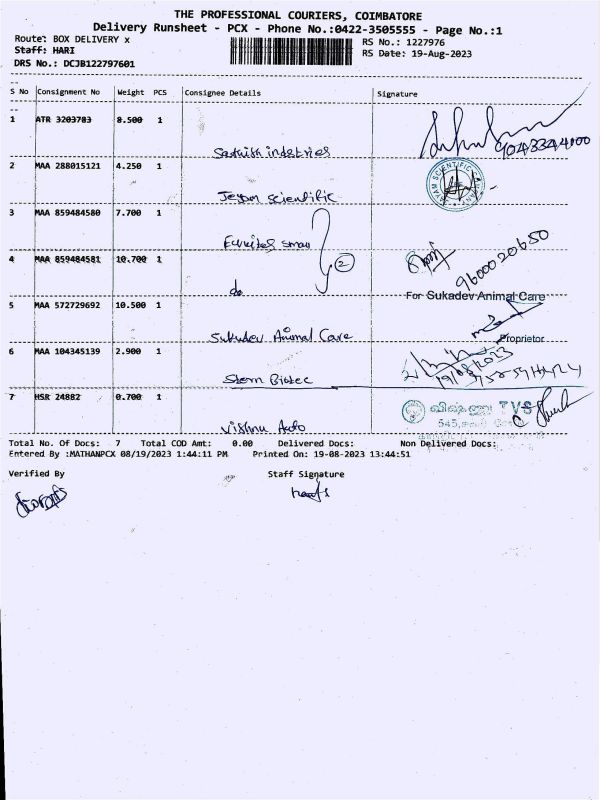 THE PROFESSIONAL COURIERS, COIMBATORE
Delivery Runsheet - PCX - Phone No.:0422-3505555 - Page No.:1
Route: BOX DELIVERY x
RS No.: 1227976
Staff: HARI
RS Date: 19-Aug-2023
DRS No.: DCJB122797601
S No Consignment No Weight PCS Consignee Details Signature
1 ATR 3203783 8.500 1
Sadhish indstries
9043344100
2 MAA 288015121 4.250 1
Jeyam scientific
3 MAA 859484580 7.700 1
small
4 MAA 859484581 10.700 1
2
9600020650
do
For Sukadev Animal Care
5 MAA 572729692 10.500 1
Sukudev Animal Care
Proprietor
6 MAA 104345139 2.900 1
19/08/2023
Stem Biotec
7 HSR 24882 0.700 1
விஷ்ணு TVS
545,
Vishnu Auto
Total No. Of Docs: 7 Total COD Amt: 0.00 Delivered Docs: Non Delivered Docs:
Entered By :MATHANPCX 08/19/2023 1:44:11 PM Printed On: 19-08-2023 13:44:51
Verified By Staff Signature